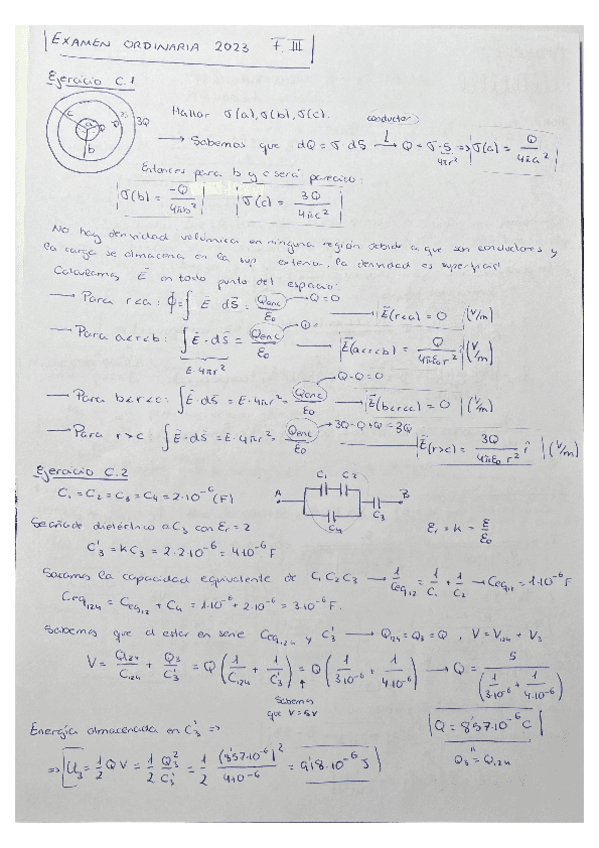 EXAMEN ORDINARIA 2023 F.III
Ejercicio C.1
c a b Q 3Q
Hallar σ(a), σ(b), σ(c). conductor
→ Sabemos que dQ = σ dS → Q = σ·S => σ(a) = Q/4πa²
4πr²
Entonces para b y c será parecido:
σ(b) = -Q/4πb² σ(c) = 3Q/4πc²
No hay densidad volúmica en ninguna región debido a que son conductores y
la carga se almacena en la sup. exterior, la densidad es superficial
Calculamos E⃗ en todo punto del espacio:
→ Para r<a: Φ = ∫ E⃗ dS⃗ = Qenc/ε₀ → Q = 0 → E⃗(r<a) = 0 (V/m)
→ Para a<r<b: ∫ E⃗·dS⃗ = Qenc/ε₀ → E⃗(a<r<b) = Q/4πε₀r² (V/m)
E·4πr²
→ Para b<r<c: ∫E⃗·dS⃗ = E·4πr² = Qenc/ε₀ → Q-Q=0 → E⃗(b<r<c) = 0 (V/m)
→ Para r>c: ∫E⃗·dS⃗ = E·4πr² = Qenc/ε₀ → 3Q-Q+Q = 3Q → E⃗(r>c) = 3Q/4πε₀r² r̂ (V/m)
Ejercicio C.2
C₁ = C₂ = C₃ = C₄ = 2·10⁻⁶ (F)
A C₁ C₂ C₄ C₃ B
Se añade dieléctrico a C₃ con εr = 2 εr = k = ε/ε₀
C₃' = kC₃ = 2·2·10⁻⁶ = 4·10⁻⁶ F
Sacamos la capacidad equivalente de C₁C₂C₃ → 1/Ceq₁₂ = 1/C₁ + 1/C₂ → Ceq₁₂ = 1·10⁻⁶ F
Ceq₁₂₄ = Ceq₁₂ + C₄ = 1·10⁻⁶ + 2·10⁻⁶ = 3·10⁻⁶ F.
Sabemos que al estar en serie Ceq₁₂₄ y C₃' → Q₁₂₄ = Q₃ = Q , V = V₁₂₄ + V₃
V = Q₁₂₄/C₁₂₄ + Q₃/C₃' = Q (1/C₁₂₄ + 1/C₃') = Q (1/3·10⁻⁶ + 1/4·10⁻⁶) → Q = 5/(1/3·10⁻⁶ + 1/4·10⁻⁶)
Sabemos
que V=5V
Q = 8'57·10⁻⁶ C
Q₃ = Q₁₂₄
Energía almacenada en C₃' =>
=> U₃ = 1/2 QV = 1/2 Q₃²/C₃' = 1/2 (8'57·10⁻⁶)²/4·10⁻⁶ = 9'18·10⁻⁶ J